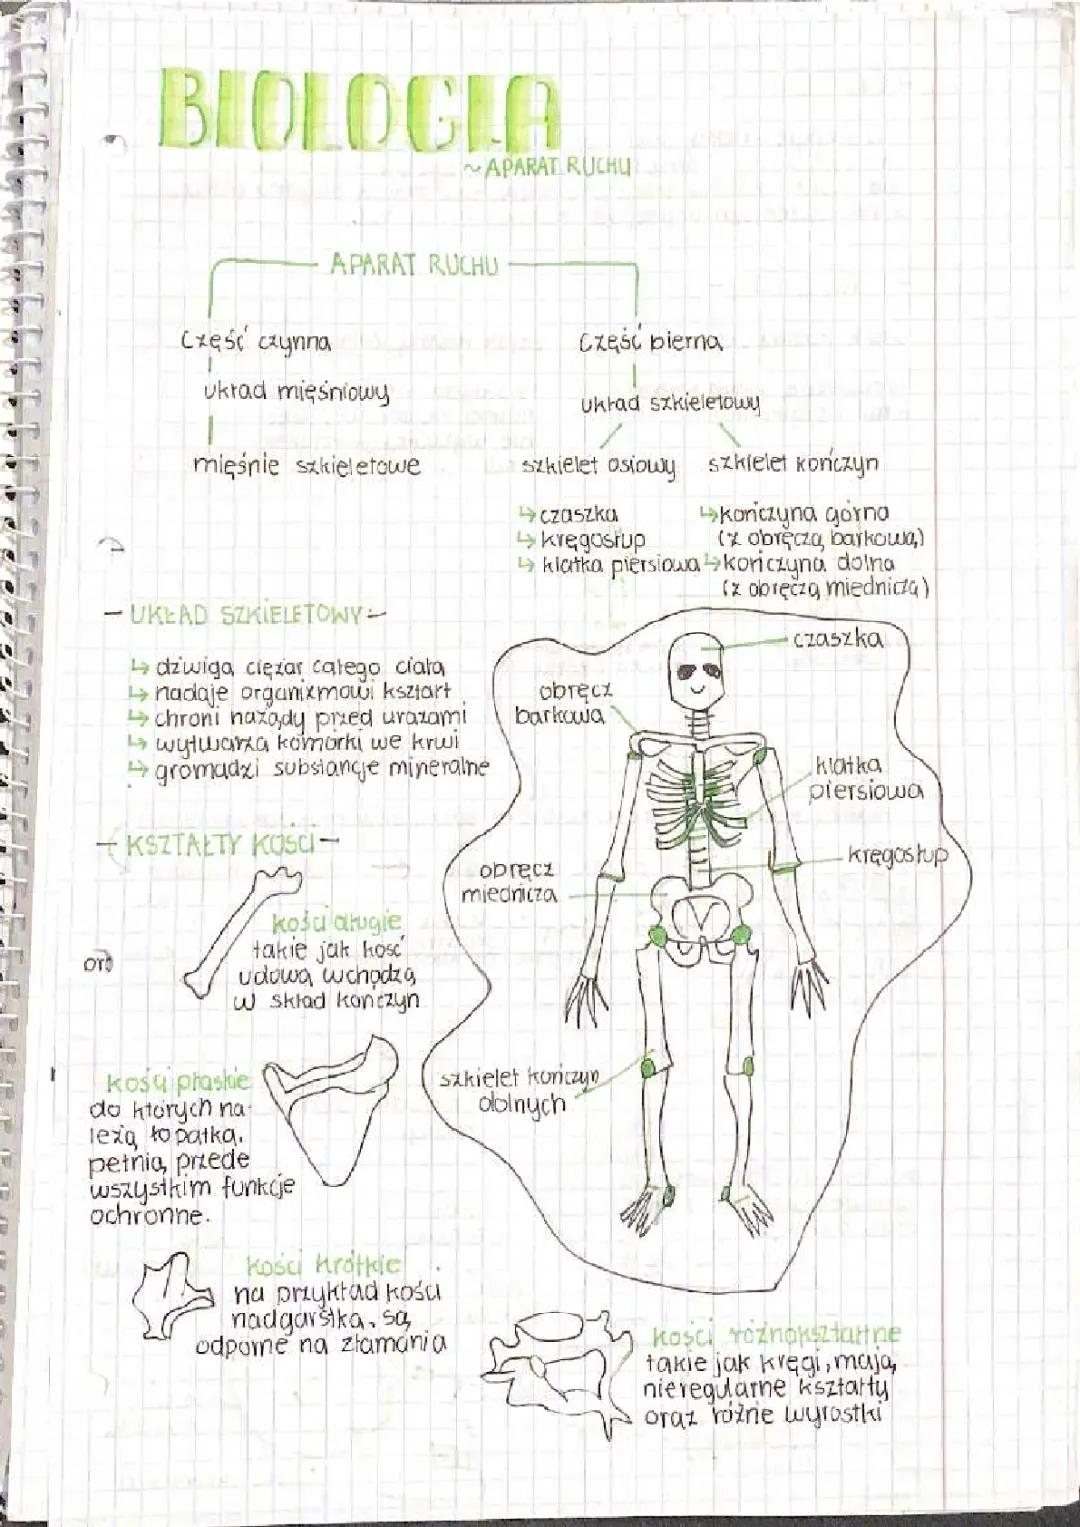 BIOLOGIA
~ APARAT RUCHU
APARAT RUCHU
Część czynna
Część bierna
układ mięśniowy
układ szkieletowy
mięśnie szkieletowe
szkielet osiowy
szkielet kończyn
↳ czaszka
↳ kręgosłup
↳ klatka piersiowa
↳ kończyna górna
(z obręczą barkową)
↳ kończyna dolna
(z obręczą miedniczą)
- UKŁAD SZKIELETOWY -
↳ dźwiga ciężar całego ciała
↳ nadaje organizmowi kształt
↳ chroni nażądy przed urazami
↳ wytwarza komórki we krwi
↳ gromadzi substancje mineralne
czaszka
obręcz
barkowa
klatka
piersiowa
kręgosłup
obręcz
miednicza
szkielet kończyn
dolnych
- KSZTAŁTY KOŚCI -
kości długie
takie jak kość
udowa wchodzą
w skład kończyn
kości płaskie
do których na-
leżą łopatka.
pełnią przede
wszystkim funkcje
ochronne.
kości krótkie
na przykład kości
nadgarstka, są
odporne na złamania
kości różnokształtne
takie jak kręgi, mają
nieregularne kształty
oraz różne wyrostki